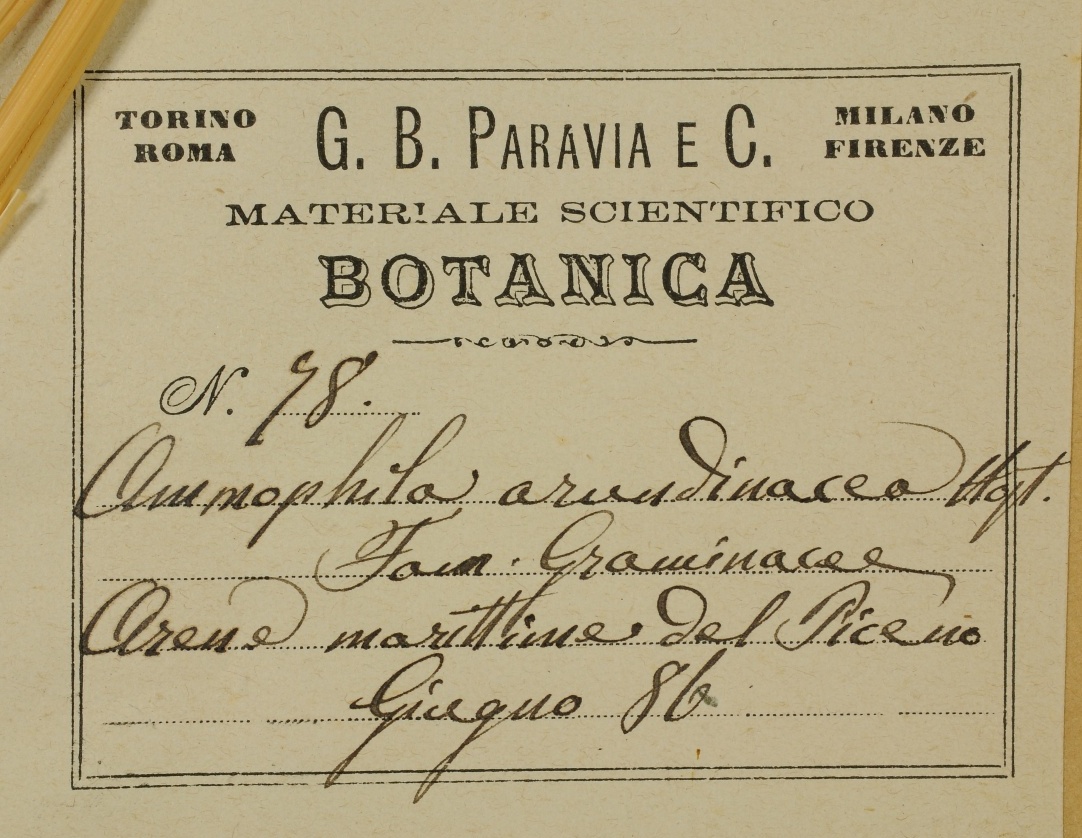 TORINO G. B. PARAVIA E C. MILANO
ROMA FIRENZE
MATERIALE SCIENTIFICO
BOTANICA
N. 78.
Ammophila arundinacea Hgt.
Fam. Graminacee
Arene marittime del Piceno
Giugno 86